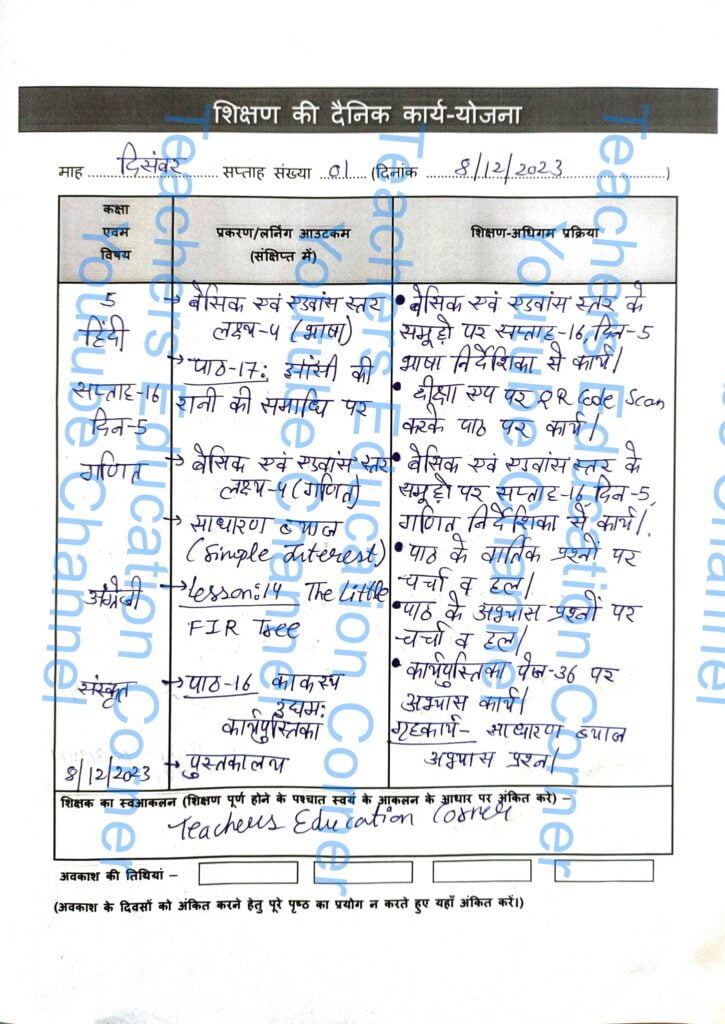 शिक्षण की दैनिक कार्य-योजना
माह दिसंबर सप्ताह संख्या 01 (दिनांक 8/12/2023)
कक्षा
एवम
विषय
प्रकरण/लर्निंग आउटकम
(संक्षिप्त में)
शिक्षण-अधिगम प्रक्रिया
5
हिंदी
सप्ताह-16
दिन-5
गणित
अंग्रेजी
संस्कृत
8/12/2023
→ बेसिक एवं एडवांस स्तर
लक्ष्य-4 (भाषा)
→ पाठ-17: झाँसी की
रानी की समाधि पर
→ बेसिक एवं एडवांस स्तर
लक्ष्य-4 (गणित)
→ साधारण ब्याज
(Simple Interest)
→ Lesson:14 The Little
FIR Tree
→ पाठ-16 काकस्य
उद्यमः
कार्यपुस्तिका
→ पुस्तकालय
• बेसिक एवं एडवांस स्तर के
समूहों पर सप्ताह-16, दिन-5
भाषा निर्देशिका से कार्य।
• दीक्षा एप पर QR Code Scan
करके पाठ पर कार्य।
• बेसिक एवं एडवांस स्तर के
समूहों पर सप्ताह-16, दिन-5,
गणित निर्देशिका से कार्य।
• पाठ के वार्तिक प्रश्नों पर
चर्चा व हल।
• पाठ के अभ्यास प्रश्नों पर
चर्चा व हल।
• कार्यपुस्तिका पेज-36 पर
अभ्यास कार्य।
गृहकार्य- साधारण ब्याज
अभ्यास प्रश्न।
शिक्षक का स्वआकलन (शिक्षण पूर्ण होने के पश्चात स्वयं के आकलन के आधार पर अंकित करे) –
Teachers Education Corner
अवकाश की तिथियां –
(अवकाश के दिवसों को अंकित करने हेतु पूरे पृष्ठ का प्रयोग न करते हुए यहाँ अंकित करें।)
Teachers Education Corner
Youtube Channel
Teachers Education Corner
Youtube Channel
Teachers Education Corner
Youtube Channel